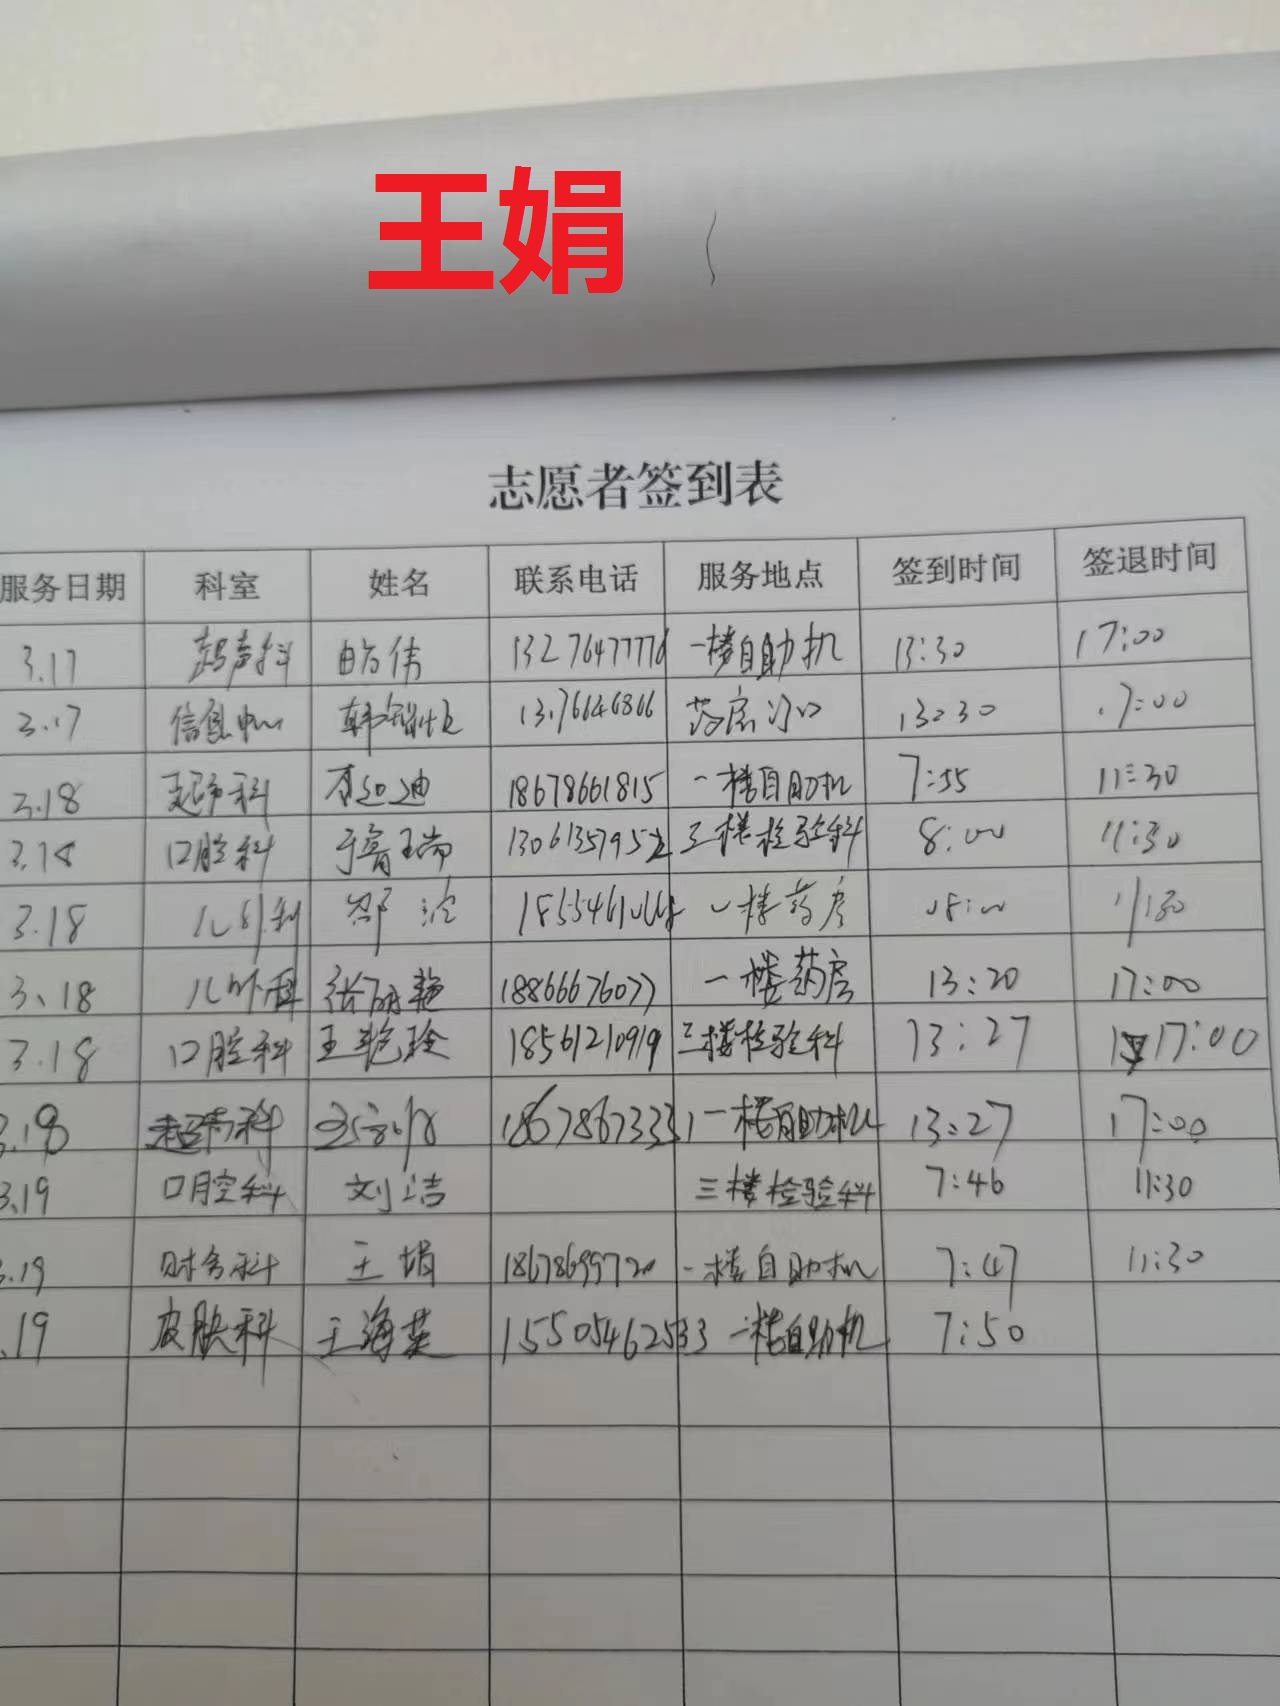 王娟
志愿者签到表
服务日期 科室 姓名 联系电话 服务地点 签到时间 签退时间
3.17 超声科 伟 13276477776 一楼自助机 13:30 17:00
3.17 信息中心 韩 药房门口 13:30 17:00
3.18 超声科 李迎迪 18678661815 一楼自助机 7:55 11:30
3.18 口腔科 于育瑞 三楼检验科 8:00 11:30
3.18 儿外科 邵 一楼药房 08:00 11:30
3.18 儿外科 张丽艳 18866676077 一楼药房 13:20 17:00
3.18 口腔科 王艳玲 18561210919 三楼检验科 13:27 17:00
3.18 超声科 18678673331 一楼自助机 13:27 17:00
3.19 口腔科 刘洁 三楼检验科 7:46 11:30
3.19 财务科 王娟 18678699720 一楼自助机 7:47 11:30
.19 皮肤科 王海英 15505462533 一楼自助机 7:50